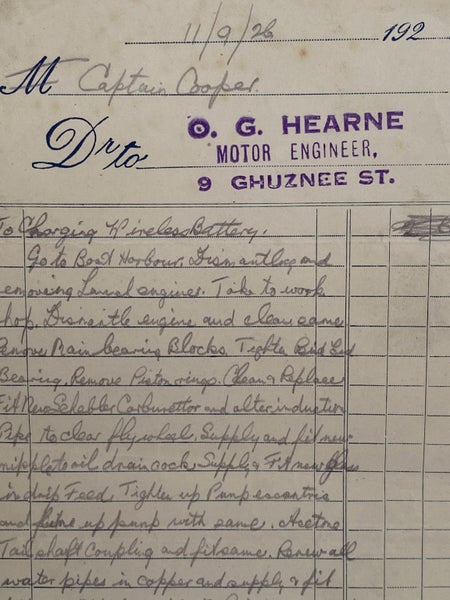 11/9/26 192
M Captain Cooper.
Dr to
O. G. HEARNE
MOTOR ENGINEER,
9 GHUZNEE ST.
To Charging Wireless Battery.
Go to Boat Harbour. Dismantling and
removing Launch engines. Take to work
shop. Dismantle engine and clean same
Remove Main bearing Blocks. Tighten Big End
Bearing. Remove Piston rings. Clean & Replace
Fit New Schebler Carburettor and alter induction
Pipe to clear flywheel. Supply and fit new
nipple to oil drain cock. Supply & Fit new Glass
in drip Feed. Tighten up Pump
and up pump with same.
Tail shaft Coupling and fit same. Renew all
water pipes in copper and supply & fit